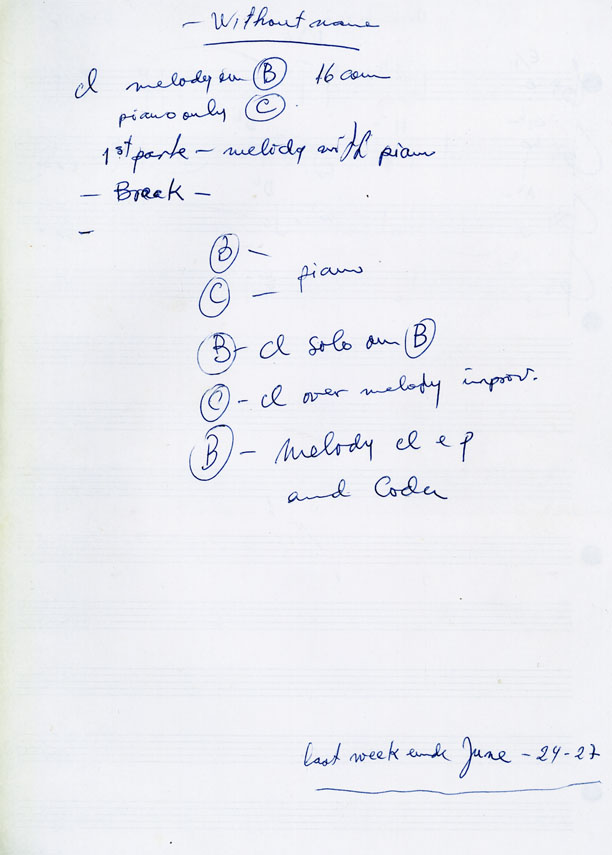 - Without name
cl melody on B 16 com
piano only C
1st parte - melody with piano
- Break -
-
B -
piano
C -
B - cl solo on B
C - cl over melody improv.
B - melody cl e p
and Coda
last week ende June - 24-27